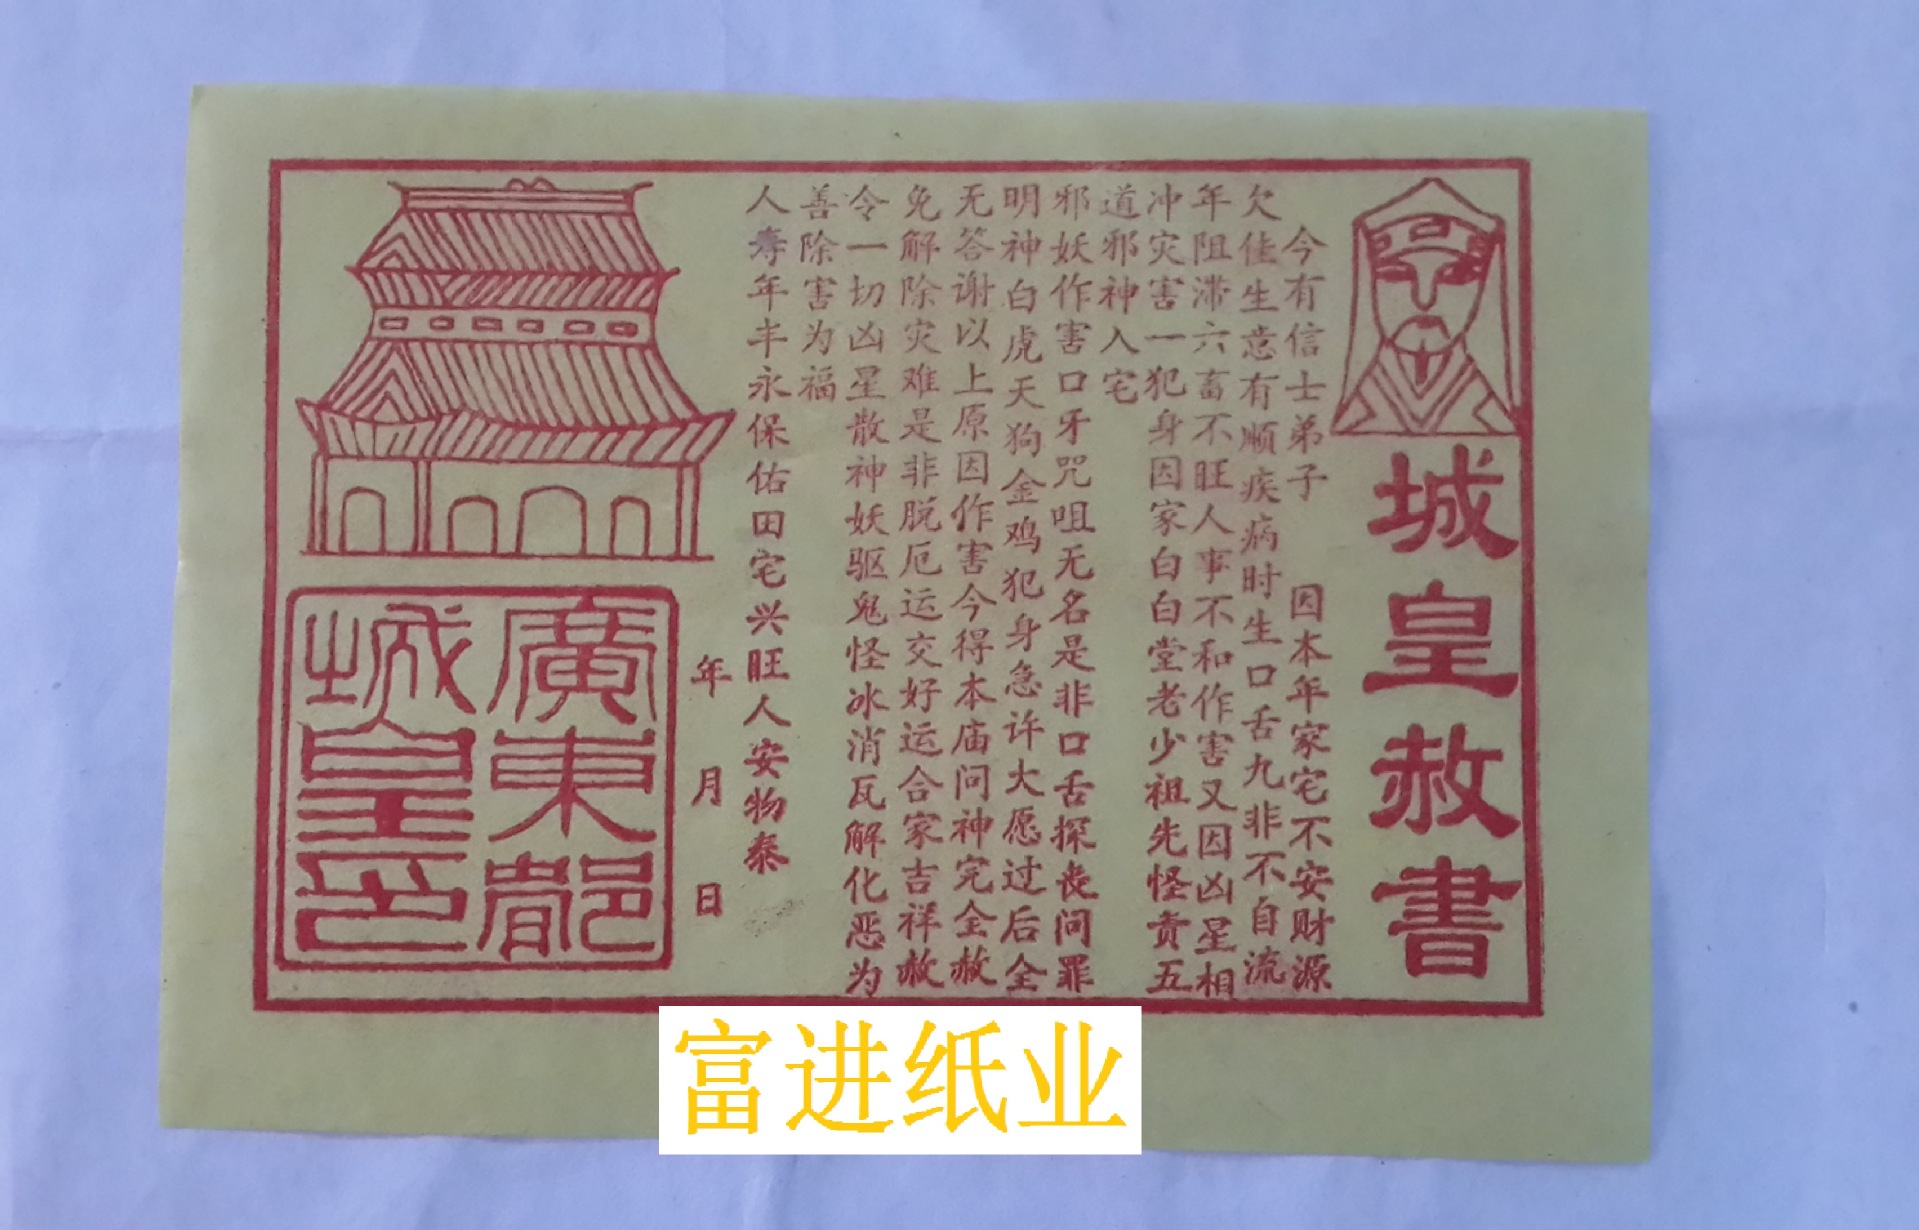 城皇赦書
今有信士弟子 因本年家宅不安财源
欠佳生意有顺疾病时生口舌九非不自流
年阻滞六畜不旺人事不和作害又因凶星相
冲灾害一犯身因家白白堂老少祖先怪责五
道邪神入宅
邪妖作害口牙咒咀无名是非口舌探丧问罪
明神白虎天狗金鸡犯身急许大愿过后全
无答谢以上原因作害今得本庙问神完全赦
免解除灾难是非脱厄运交好运合家吉祥赦
令一切凶星散神妖驱鬼怪冰消瓦解化恶为
善除害为福
人寿年丰永保佑田宅兴旺人安物泰
年 月 日
廣東都
城皇印
富进纸业